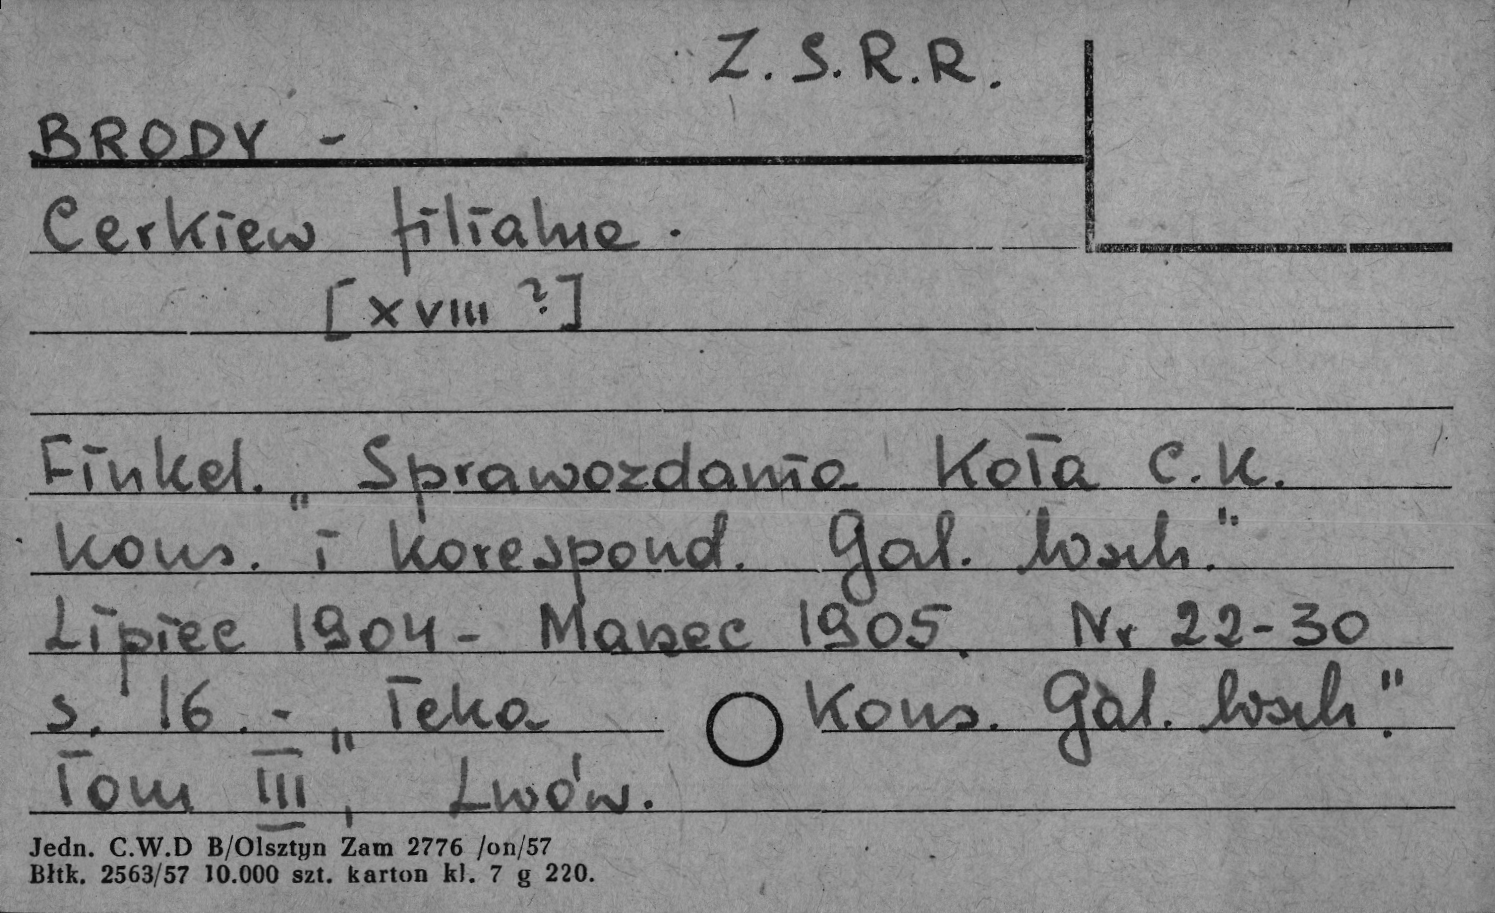 Z.S.R.R.
BRODY -
Cerkiew filialna.
[XVIII ?]
Finkel. "Sprawozdania Koła C.K.
kons." i korespond. Gal. wsch."
Lipiec 1904 - Marzec 1905. Nr 22-30
s. 16. - "Teka Kons. Gal. wsch."
Tom III, Lwów.
Jedn. C.W.D B/Olsztyn Zam 2776 /on/57
Błtk. 2563/57 10.000 szt. karton kl. 7 g 220.